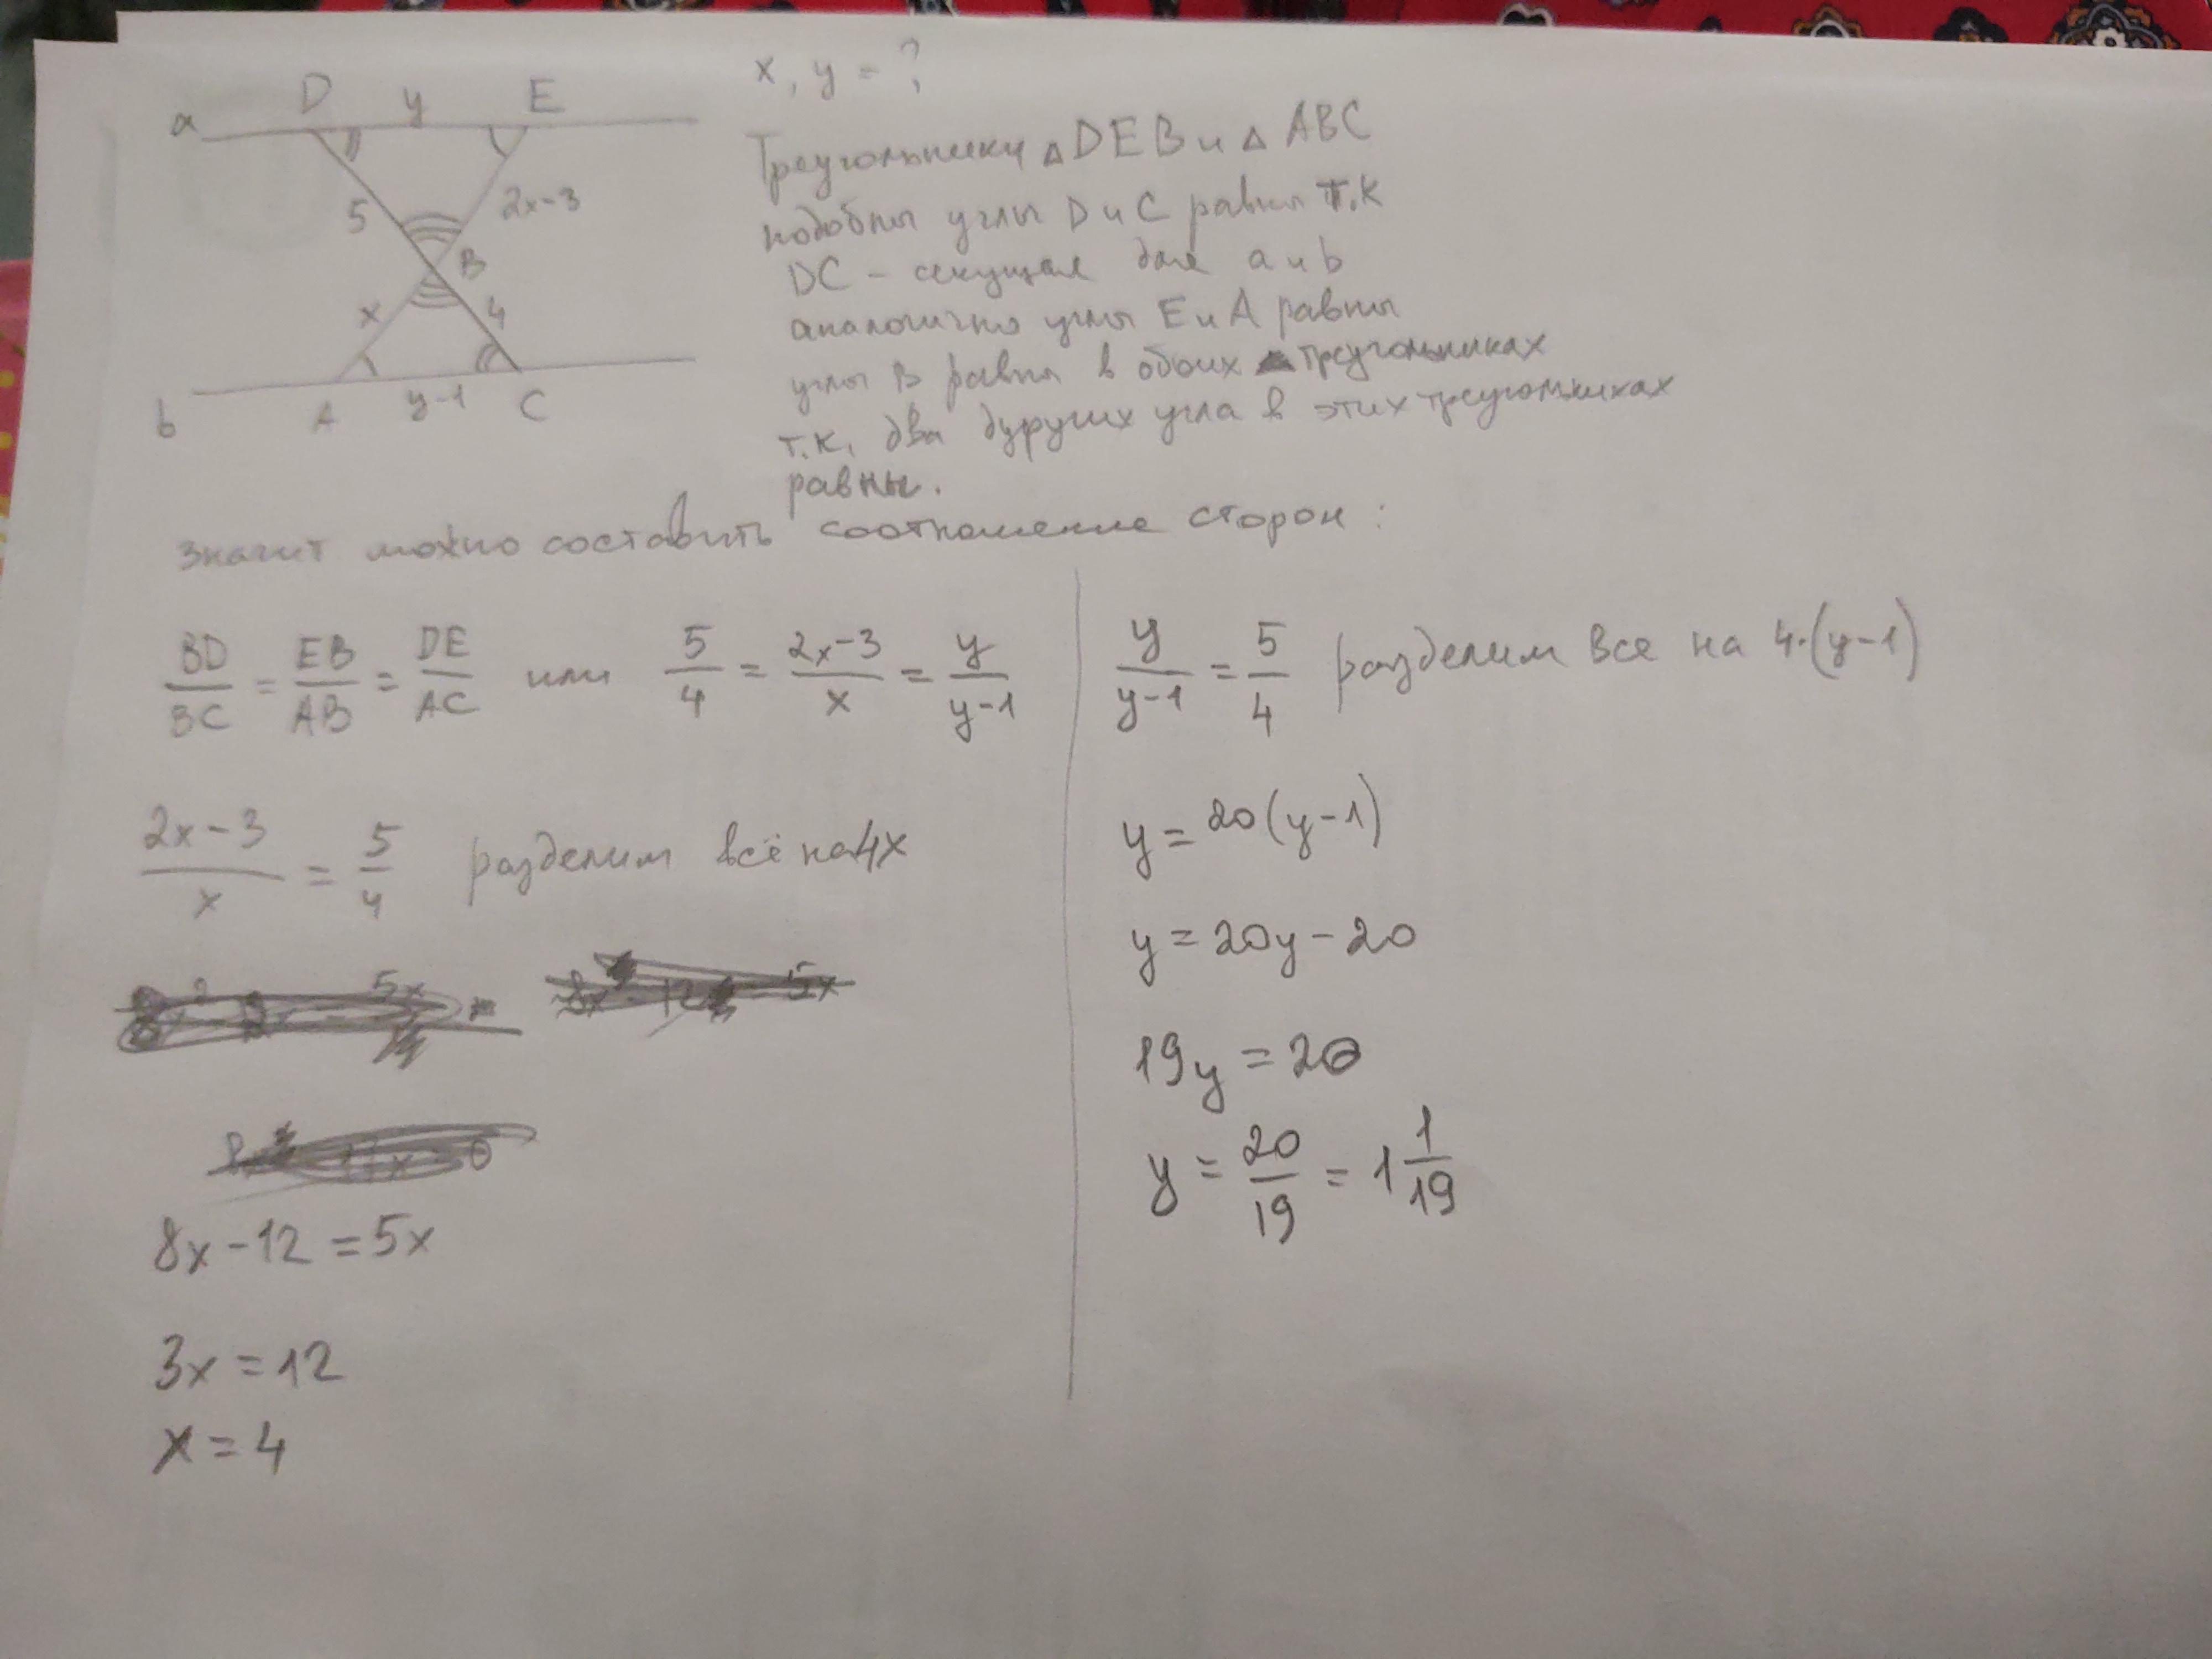 x, y = ?
a D y E
5 2x-3
B
x 4
b A y-1 C
Треугольники △DEB и △ABC
подобны углы D и C равны т.к
DC - секущая для a и b
аналогично углы E и A равны
углы B равны в обоих треугольниках
т.к. два дургих угла в этих треугольниках
равны.
значит можно составить соотношение сторон:
BD/BC = EB/AB = DE/AC или 5/4 = 2x-3/x = y/y-1
2x-3/x = 5/4 разделим всё на 4x
8x-12=5x
3x=12
x=4
y/y-1 = 5/4 разделим все на 4·(y-1)
y=20(y-1)
y=20y-20
19y=20
y = 20/19 = 1 1/19